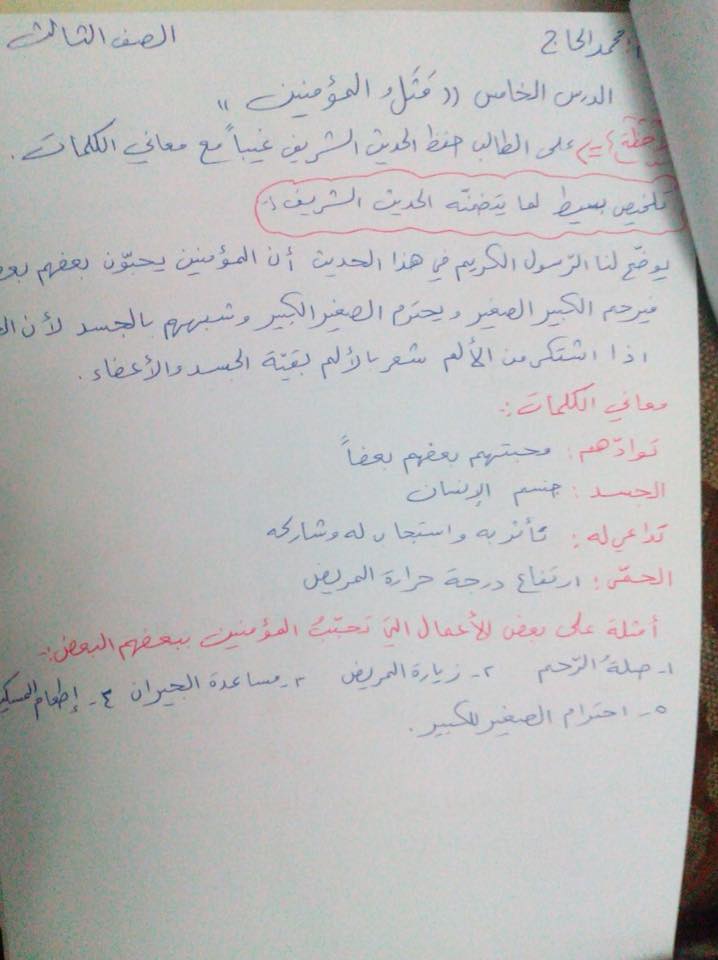 محمد الحاج الصف الثالث
الدرس الخامس (( مَثَلُ المؤمنين ))
على الطالب حفظ الحديث الشريف غيباً مع معاني الكلمات .
تلخيص بسيط لما يتضمنه الحديث الشريف :-
يوضّح لنا الرّسول الكريم في هذا الحديث أن المؤمنين يحبّون بعضهم
فيرحم الكبير الصغير ويحترم الصغير الكبير وشبههم بالجسد لأن
اذا اشتكى من الألم شعر بالألم بقيّة الجسد والأعضاء .
معاني الكلمات :-
توادّهم : محبتهم بعضهم بعضاً
الجسد : جسم الإنسان
تداعى له : تأثر به واستجاب له وشاركه
الحمّى : ارتفاع درجة حرارة المريض
أمثلة على بعض الأعمال التي تحبّبُ المؤمنين ببعضهم البعض :-
١- صلةُ الرّحم ٢- زيارة المريض ٣- مساعدة الجيران ٤- إطعام
٥- احترام الصغير للكبير .